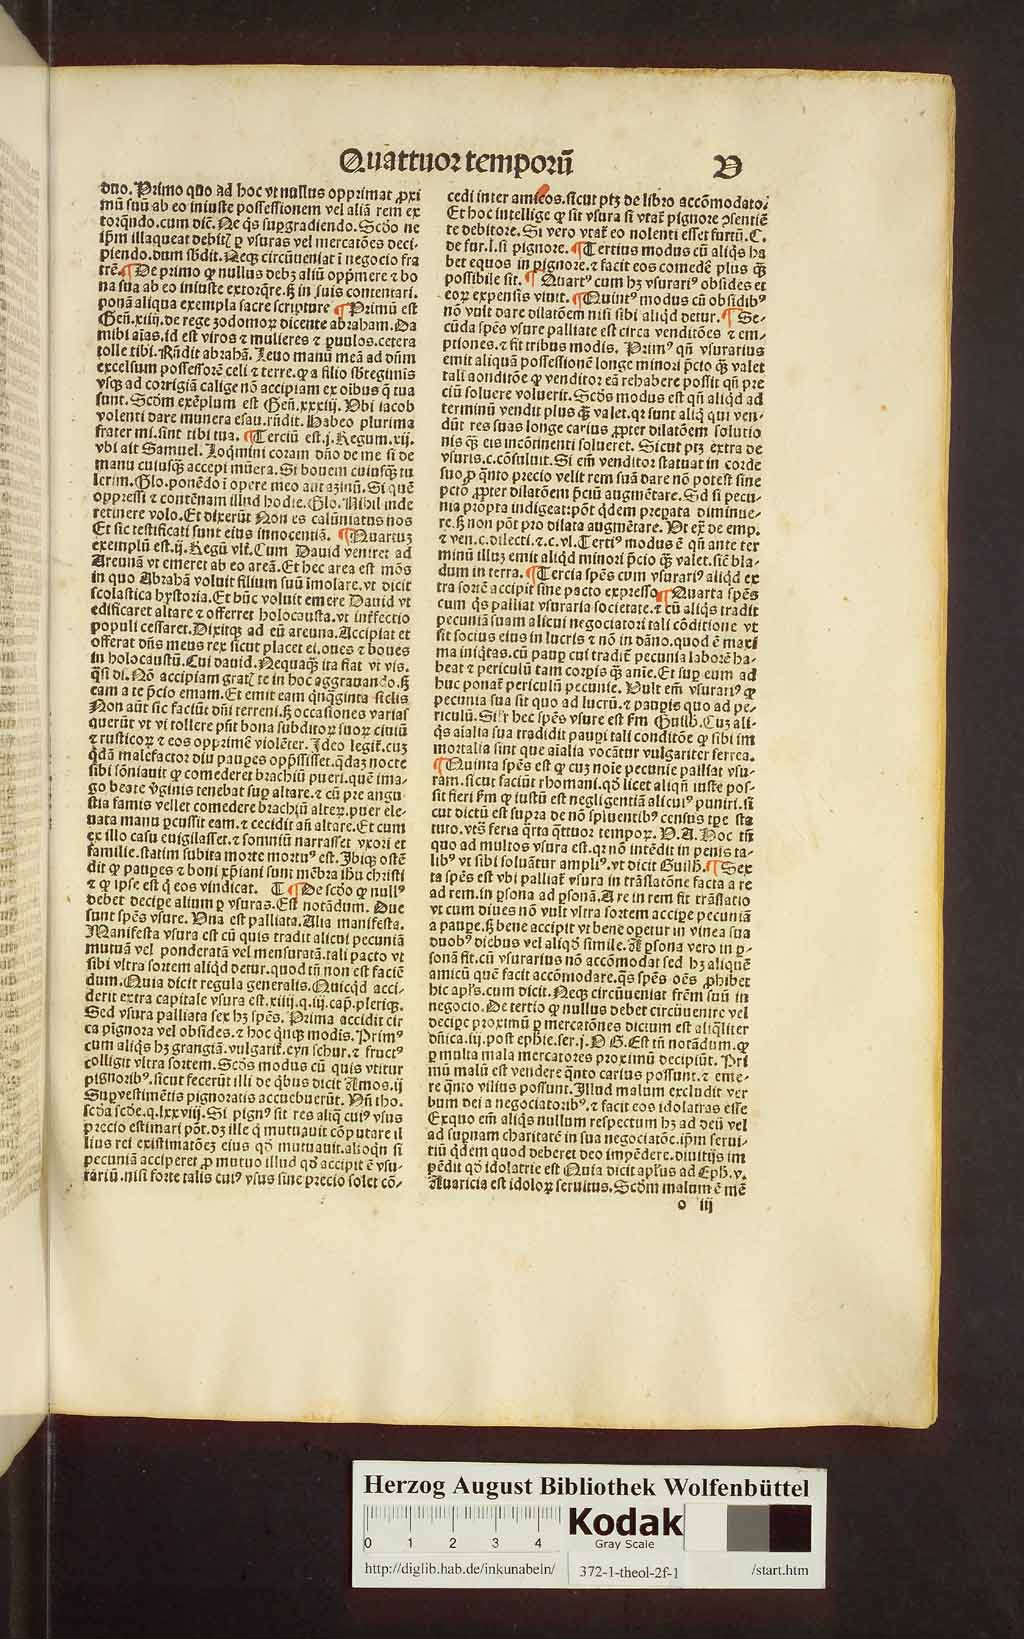 Quattuor temporũ
D
duo. Primo quo ad hoc vt nullus opprimat ꝓxi
mũ suũ ab eo iniuste possessionem vel aliã rem ex
torq̃ndo. cum diĉ. Ne q̃s supgradiendo. Scďo ne
ip̃m illaqueat debit̃ ꝑ vsuras vel mercatões deci-
piendo. dum sb̃dit. Neqꝫ circũueniat ĩ negocio fra
trẽ. ¶ De primo ꝙ nullus debꝫ aliũ oppͥmere ⁊ bo
na sua ab eo iniuste extorq̃re. sꝫ in suis contentari.
ponã aliqua exempla sacre scripture ¶ Primũ est
Geñ. xiiij. de rege zodomoꝝ dicente abraham. Da
mihi aĩas. id est viros ⁊ mulieres ⁊ puulos. cetera
tolle tibi. Rñdit abrahã. Leuo manũ meã ad dñm
excelsum possessorẽ celi ⁊ terre. ꝙ a filo sb̃tegimĩs
vsqꝫ ad corrigiã calige nõ accipiam ex oĩbus q̃ tua
sunt. Scďm exẽplum est Geñ. xxxiij. Vbi iacob
volenti dare munera esau. rñdit. Habeo plurima
frater mi. sint tibi tua. ¶ Terciũ est. j. Regum. xij.
vbi ait Samuel. Loq̃mini coram dño de me si de
manu cuiusqꝫ accepi mũera. Si bouem cuiusqꝫ tu
lerim. Glo. ponẽdo ĩ opere meo aut azinũ. Si quẽ
oppressi ⁊ contẽnam illud hodie. Glo. Nihil inde
retinere volo. Et dixerũt Non es calũniatus nos
Et sic testificati sunt eius innocenciã. ¶ Quartuꝫ
exemplũ est. ij. Regũ vlt̃. Cum Dauid veniret ad
Areunã vt emeret ab eo areã. Et hec area est mõs
in quo Abrahã voluit filium suũ imolare. vt dicit
scolastica hystoria. Et hũc voluit emere Dauid vt
edificaret altare ⁊ offerret holocausta. vt int̃fectio
populi cessaret. Dixitqꝫ ad eũ areuna. Accipiat et
offerat dñs meus rex sicut placet ei. oues ⁊ boues
in holocaustũ. Cui dauid. Nequaqꝫ ita fiat vt vis.
q̃si di. Nõ accipiam grat̃ te in hoc aggrauando. sꝫ
eam a te p̃cio emam. Et emit eam q̃nq̃ginta siclis
Non aũt sic faciũt dñi terreni. sꝫ occasiones varias
querũt vt vi tollere pñt bona subditoꝝ suoꝝ ciuiũ
⁊ rusticoꝝ ⁊ eos opprimẽ violẽter. Ideo legit̃. cuꝫ
q̃dã malefactor diu paupes opp̃ssisset. q̃daꝫ nocte
sibi sõniauit ꝙ comederet brachiũ pueri. quẽ ima-
go beate v̓ginis tenebat sup altare. ⁊ cũ pre angu
stia famis vellet comedere brachiũ alteꝝ. puer ele-
uata manu ꝑcussit eam. ⁊ cecidit añ altare. Et cum
ex illo casu euigilasset. ⁊ somniũ narrasset vxori et
familie. statim subita morte mortuꝰ est. Ibiqꝫ ostẽ
dit ꝙ paupes ⁊ boni xp̃iani sunt mẽbra ihu christi
⁊ ꝙ ipse est q̃ eos vindicat. T ¶ De scďo ꝙ nullꝰ
debet decipe alium ꝑ vsuras. Est notãdum. Due
sunt spẽs vsure. Vna est palliata. Alia manifesta.
Manifesta vsura est cũ quis tradit alicui pecuniã
mutuã vel ponderatã vel mensuratã. tali pacto vt
sibi vltra sortem aliq̃d detur. quod tñ non est faciẽ
dum. Quia dicit regula generalis. Quicq̃d acci-
derit extra capitale vsura est. xiiij. q. iij. cap̃. plerіqꝫ.
Sed vsura palliata sex hꝫ spẽs. Prima accidit cir
ca pignora vel obsides. ⁊ hoc q̃nqꝫ modis. Primꝰ
cum aliq̃s hꝫ grangiã. vulgarit̃. eyn schur. ⁊ fructꝰ
colligit vltra sortem. Scďs modus cũ quis vtitur
pignoribꝰ. sicut fecerũt illi de q̃bus dicit Amos. ij
Sup vestimẽtis pignoratis accuebuerũt. Vñ tho.
scďa scďe. q. lxxviij. Si pignꝰ sit res aliq̃ cuiꝰ vsus
precio estimari põt. dꝫ ille q̃ mutuauit cõputare il
lius rei existimatõeꝫ eius qď mutuauit. alioqn si
pecuniã acciperet ꝓ mutuo illud qď accipit ẽ vsu-
rariũ. nisi forte talis cuiꝰ vsus sine precio solet cõ-
cedi inter amicos. sicut ptꝫ de libro accõmodato.
Et hoc intellige ꝙ sit vsura si vtat̃ pignore ꝯsentiẽ
te debitore. Si vero vtat̃ eo nolenti esset furtũ. C.
de fur. l. si pignore. ¶ Tertius modus cũ aliq̃s ha
bet equos in pignore. ⁊ facit eos comedẽ plus q̃ꝫ
possibile sit. ¶ Quartꝰ cum hꝫ vsurariꝰ obsides et
eoꝝ expensis viuit. ¶ Quintꝰ modus cũ obsidibꝰ
nõ vult dare dilatõem nisi sibi aliq̃d detur. ¶ Se-
cũda spẽs vsure palliate est circa venditões ⁊ em-
ptiones. ⁊ fit tribus modis. Primꝰ qñ vsurarius
emit aliquã possessionẽ longe minori p̃cio q̃ꝫ valet
tali aonditõe ꝙ venditor eã rehabere possit qñ pre
ciũ soluere voluerit. Scďs modus est qñ aliq̃d ad
terminũ vendit plus q̃ꝫ valet. qꝛ sunt aliq̃ qui ven-
dũt res suas longe carius ꝓpter dilatõem solutio
nis q̃ꝫ eis incõtinenti solueret. Sicut ptꝫ extra de
vsuris. c. cõsuluit. Si em̃ venditor statuat in corde
suo ꝓ q̃nto precio velit rem suã dare nõ potest sine
pctõ ꝓpter dilatõem p̃ciũ augmẽtare. Sd si pecu-
nia ꝓpta indigeat: põt q̃dem preꝑata diminue-
re. sꝫ non põt pro dilata augmẽtare. Vt ex̃ de emp.
⁊ ven. c. dilecti. ⁊. c. vl. Tertiꝰ modus ẽ qñ ante ter
minũ illuꝫ emit aliq̃d minori p̃cio q̃ꝫ valet. sic̃ bla-
dum in terra. ¶ Tercia spẽs cum vsurariꝰ aliq̃d ex
tra sortẽ accipit sine pacto expresso. ¶ Quarta spẽs
cum q̃s palliat vsuraria societate. ⁊ cũ aliq̃s tradit
pecuniã suam alicui negociatori tali cõditione vt
sit socius eius in lucris ⁊ nõ in dãno. quod ẽ maxi
ma iniq̃tas. cũ paup cui tradit̃ pecunia laborẽ ha-
beat ⁊ periculũ tam corꝑis q̃ꝫ anie. Et sup eum ad
huc ponat̃ periculũ pecunie. Vult em̃ vsurariꝰ ꝙ
pecunia sua sit quo ad lucrũ. ⁊ paupis quo ad pe-
riculũ. Sil̃r hec spẽs vsure est ẽm Guilh. Cuꝫ ali-
q̃s aĩalia sua tradidit paupi tali conditõe ꝙ sibi im
mortalia sint que aĩalia vocãtur vulgariter ferrea.
¶ Quinta spẽs est ꝙ cuꝫ noĩe pecunie palliat vsu-
ram. sicut faciũt rhomani. qď licet aliqñ iuste pos-
sit fieri ẽm ꝙ iustũ est negligentiã alicuiꝰ puniri. si
cut dictũ est supra de nõ sp̃luentibꝰ census tpe sta
tuto. vts̃ feria q̃rta q̃ttuor tempoꝝ. P. A. Hoc tñ
quo ad multos vsura est. qꝛ nõ intẽdit in penis ta-
libꝰ vt sibi soluãtur ampliꝰ. vt dicit Guilh̃. ¶ Sex
ta spẽs est vbi palliat̃ vsura in trãslatõne facta a re
ad rem. in ꝑsona ad ꝑsonã. A re in rem fit trãslatio
vt cum diues nõ vult vltra sortem accipe pecuniã
a paupe. sꝫ bene accipit vt bene opetur in vinea sua
duobꝰ diebus vel aliqď simile. A ꝑsona vero in ꝑ-
sonã fit. cũ vsurarius nõ accõmodat sed hꝫ aliquẽ
amicũ quẽ facit accõmodare. q̃s spẽs oẽs ꝓhibet
hic apl̃s. cum dicit. Neqꝫ circũueniat frẽm suũ in
negocio. De tertio ꝙ nullus debet circũuenire vel
decipe proximũ ꝑ mercatõnes dictum est aliq̃liter
dñica. iij. post ephie. ser. j. P G. Est tñ notãdum. ꝙ
ꝑ multa mala mercatores proximũ decipiũt. Pri
mũ malũ est vendere q̃nto carius possunt. ⁊ eme-
re q̃nto vilius possunt. Illud malum excludit ver
bum dei a negociatoribꝰ. ⁊ facit eos idolatras esse
Exquo em̃ aliq̃s nullum respectum hꝫ ad deũ vel
ad supnam charitatẽ in sua negociatõe. ip̃m serui-
tiũ q̃dem quod deberet deo impẽdere. diuitijs im
pẽdit qď idolatrie est Quia dicit apl̃us ad Eph̃. v.
Auaricia est idoloꝝ seruitus. Scďm malum ẽ mẽ
o iij
Herzog August Bibliothek Wolfenbüttel
0 1 2 3 4
Kodak
Gray Scale
http://diglib.hab.de/inkunabeln/
372-1-theol-2f-1
/start.htm